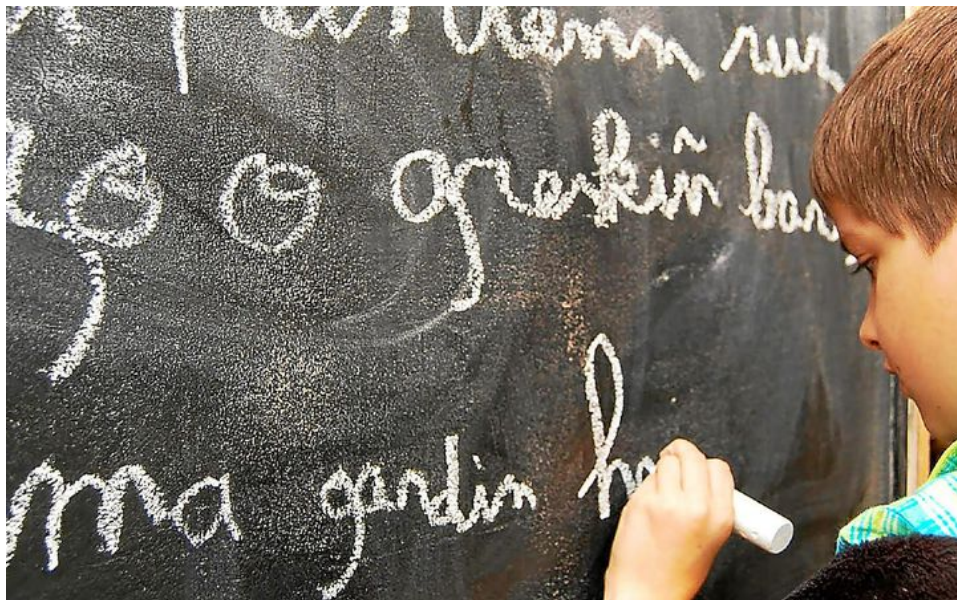 ruz
zo o greskiñ bar
ma gardin h